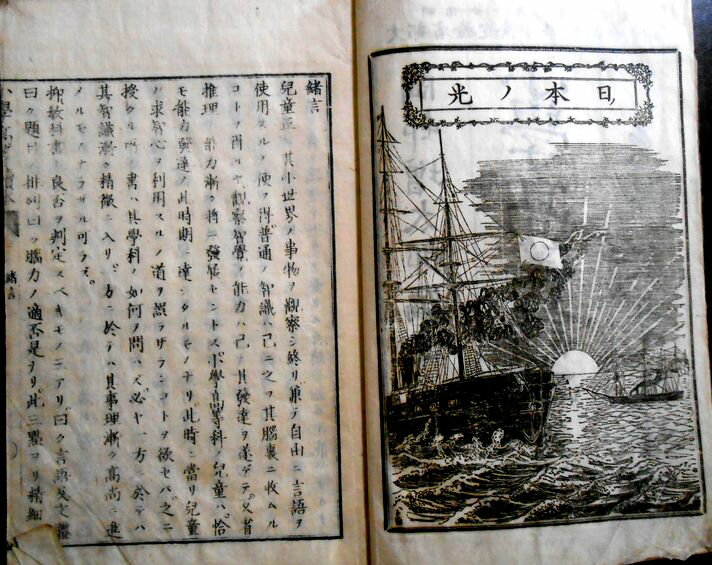 日本ノ光
緒言
兒童正ニ其小世界ノ事物ヲ觀察シ終リ兼テ自由ニ言語ヲ
使用スルノ便ヲ得普通ノ智識ハ已ニ之ヲ其腦裏ニ收ムル
コトヲ得ルヤ觀察智覺ノ能力ハ已ニ其發達ヲ遂ゲテ又省
推理ノ能力漸ク將ニ發展セントス小學高等科ノ兒童ハ恰
モ能力發達ノ此時期ニ達シタルモノナリ此時ニ當リ兒童
ノ求智心ヲ利用スルノ道ヲ誤ラザランコトヲ欲セバ之ニ
授クル所ノ書ハ其學科ノ如何ヲ問ハズ必ヤ一方ニ於テハ
其智識漸ク精微ニ入リ一方ニ於テハ其事理漸ク高尚ニ進
メルモノナラザル可ラズ
抑教科書ノ良否ヲ判定スベキモノ三アリ曰ク言語及文體
曰ク題目ノ排列曰ク腦力ノ適否是ナリ此三點ヨリ精細
小學高等讀本
緒言